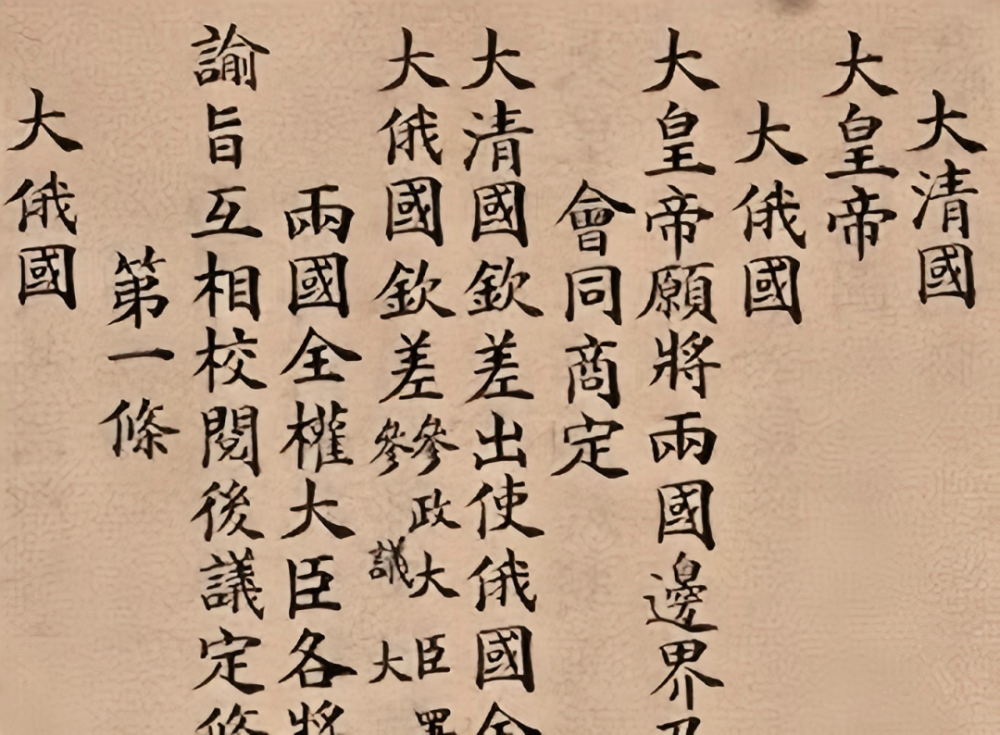 大清國
大皇帝
大俄國
大皇帝願將兩國邊界及
會同商定
大清國欽差出使俄國全
大俄國欽差
參政大臣署
參議大
兩國全權大臣各將
諭旨互相校閱後議定條
第一條
大俄國